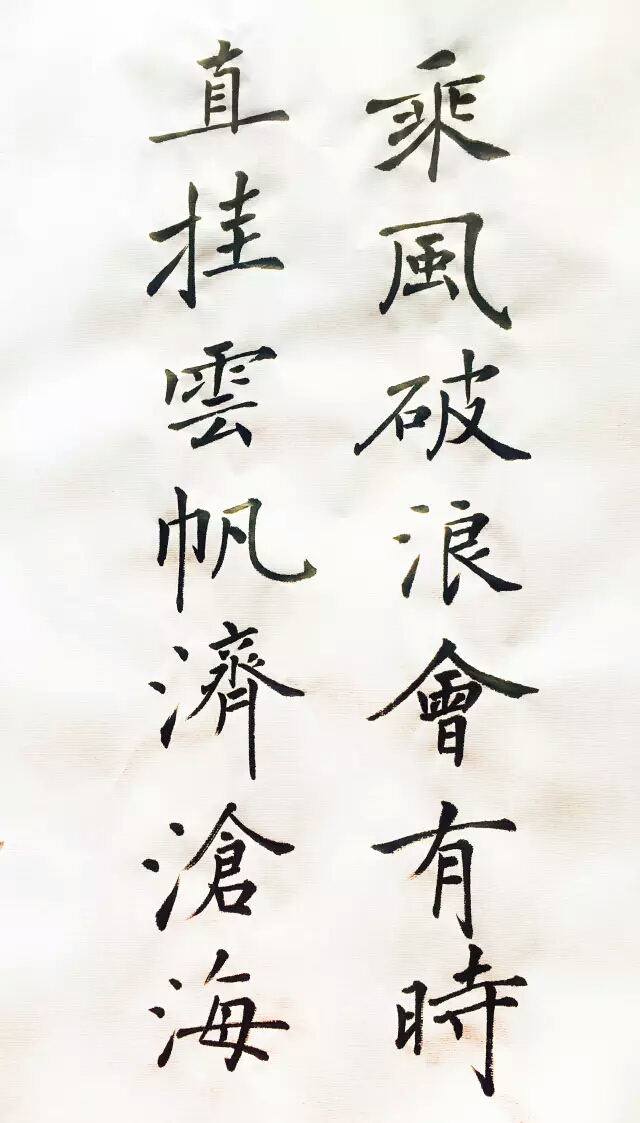 乘風破浪會有時
直挂雲帆濟滄海